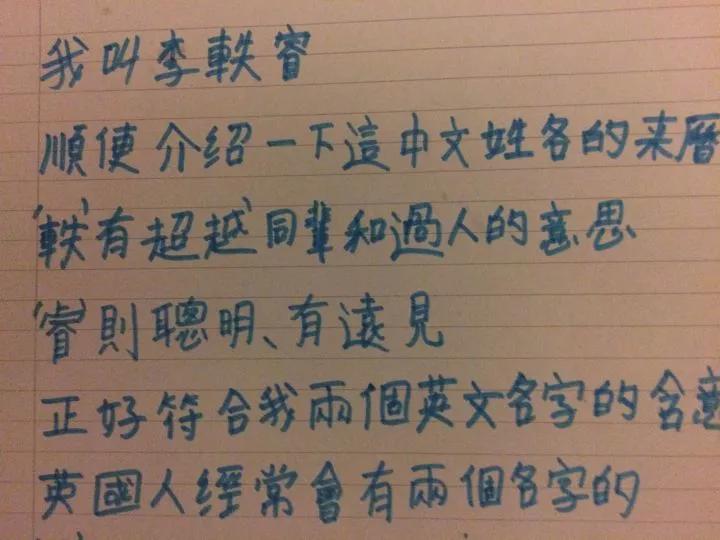 我叫李軼睿
順便介绍一下這中文姓名的来曆
'軼'有超越同輩和過人的意思
'睿'則聰明、有遠見
正好符合我兩個英文名字的含意
英國人經常會有兩個名字的